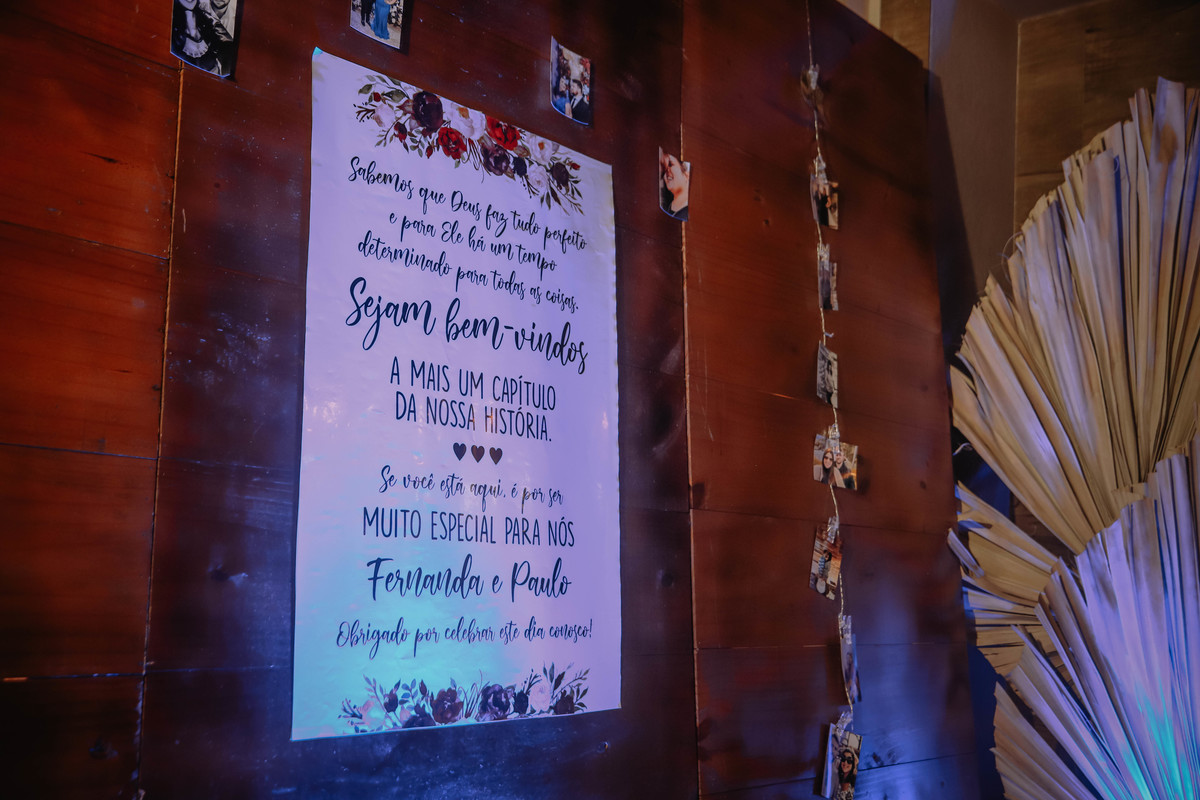 Sabemos que Deus faz tudo perfeito
e para Ele há um tempo
determinado para todas as coisas.
Sejam bem-vindos
A MAIS UM CAPÍTULO
DA NOSSA HISTÓRIA.
Se você está aqui, é por ser
MUITO ESPECIAL PARA NÓS
Fernanda e Paulo
Obrigado por celebrar este dia conosco!